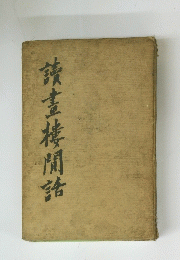 讀畫樓閒話